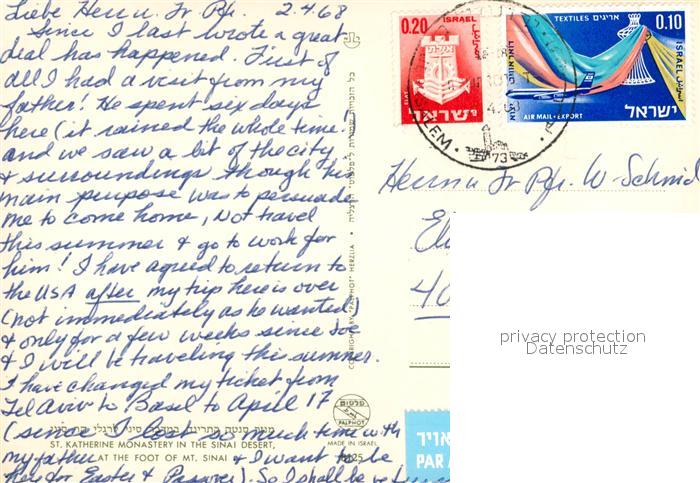 Liebe Herr u. Fr Pfr. 2.4.68
Since I last wrote a great
deal has happened. First of
all I had a visit from my
father! He spent six days
here (it rained the whole time!)
and we saw a bit of the city
& surroundings though his
main purpose was to persuade
me to come home, not travel
this summer & go to work for
him! I have agreed to return to
the USA after my trip here is over
(not immediately as he wanted)
& only for a few weeks since Joe
& I will be traveling this summer.
I have changed my ticket from
Tel Aviv to Basel to April 17
(since I lost so much time with
my father & I want to be
here for Easter & Passover). So I shall be
ST. KATHERINE MONASTERY IN THE SINAI DESERT,
AT THE FOOT OF MT. SINAI
פלפוט
PALPHOT
MADE IN ISRAEL
COPYRIGHT BY "PALPHOT" HERZLIA
0.20 ISRAEL
ישראל
TEXTILES אריגים 0.10
ISRAEL
AIR MAIL • EXPORT
ישראל
73
Herrn u Fr Pfr. W. Schmid
40
privacy protection
Datenschutz
אויר
PAR A